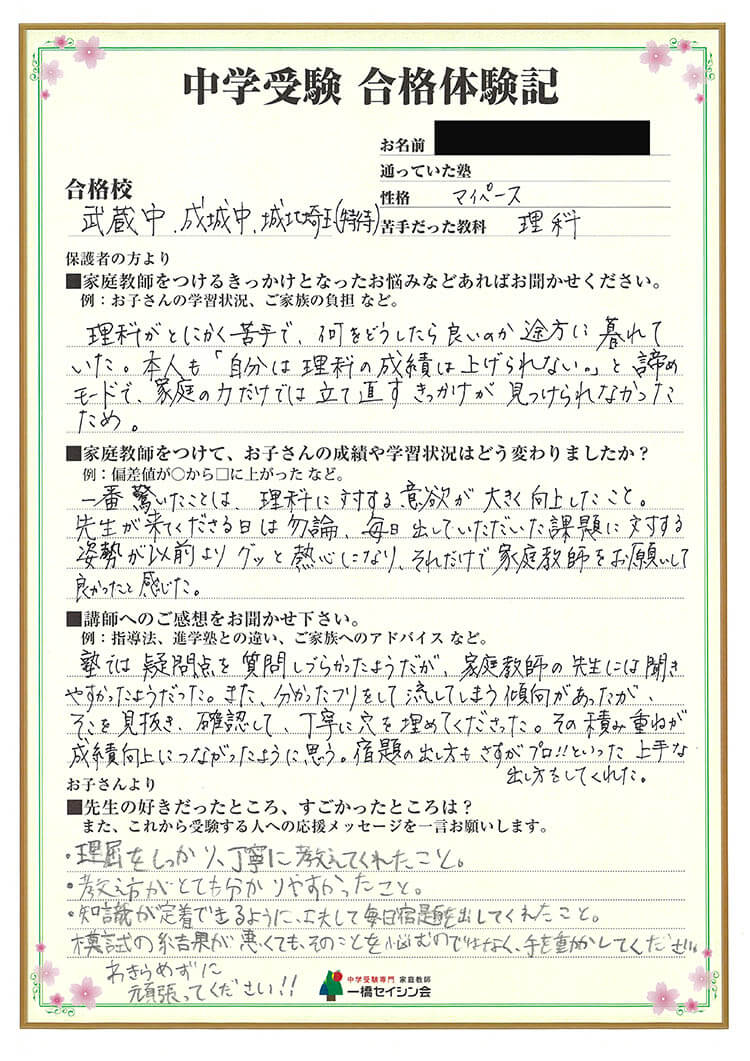 中学受験 合格体験記
お名前
通っていた塾
合格校
性格 マイペース
武蔵中、成城中、城北埼玉(特待)
苦手だった教科 理科
保護者の方より
■家庭教師をつけるきっかけとなったお悩みなどあればお聞かせください。
例：お子さんの学習状況、ご家族の負担 など。
理科がとにかく苦手で、何をどうしたら良いのか途方に暮れて
いた。本人も「自分は理科の成績は上げられない。」と諦め
モードで、家庭の力だけでは立て直すきっかけが見つけられなかった
ため。
■家庭教師をつけて、お子さんの成績や学習状況はどう変わりましたか？
例：偏差値が○から□に上がった など。
一番驚いたことは、理科に対する意欲が大きく向上したこと。
先生が来てくださる日は勿論、毎日出していただいた課題に対する
姿勢が以前よりグッと熱心になり、それだけで家庭教師をお願いして
良かったと感じた。
■講師へのご感想をお聞かせ下さい。
例：指導法、進学塾との違い、ご家族へのアドバイス など。
塾では疑問点を質問しづらかったようだが、家庭教師の先生には聞き
やすかったようだった。また、分かったフリをして流してしまう傾向があったが、
そこを見抜き、確認して、丁寧に穴を埋めてくださった。その積み重ねが
成績向上につながったように思う。宿題の出し方もさすがプロ!!といった上手な
出し方をしてくれた。
お子さんより
■先生の好きだったところ、すごかったところは？
また、これから受験する人への応援メッセージを一言お願いします。
・理屈をしっかり、丁寧に教えてくれたこと。
・教え方がとても分かりやすかったこと。
・知識が定着できるように、工夫して毎日宿題を出してくれたこと。
模試の結果が悪くても、そのことを悩むのではなく、手を動かしてください。
あきらめずに
頑張ってください!!
中学受験専門 家庭教師
一橋セイシン会